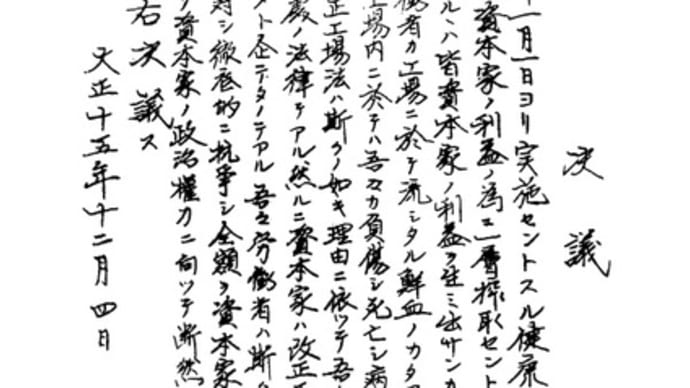 決議
一月一日ヨリ実施セントスル健康
資本家ノ利益ノ為ニ一層搾取セント
ルハ皆資本家ノ利益ヲ生ミ出サンカ
働者カ工場ニ於テ流シタル鮮血ノカタ
工場内ニ於テハ吾々カ負傷シ死亡シ病
正工場法ハ斯クノ如キ理由ニ依ツテ吾
厳ノ法律テアル然ルニ資本家ハ改正
タト企テタノテアル吾々労働者ハ断
対シ徹底的ニ抗争シ全額ヲ資本家
資本家ノ政治権力ニ向ツテ断然
右決議ス
大正十五年十二月四日